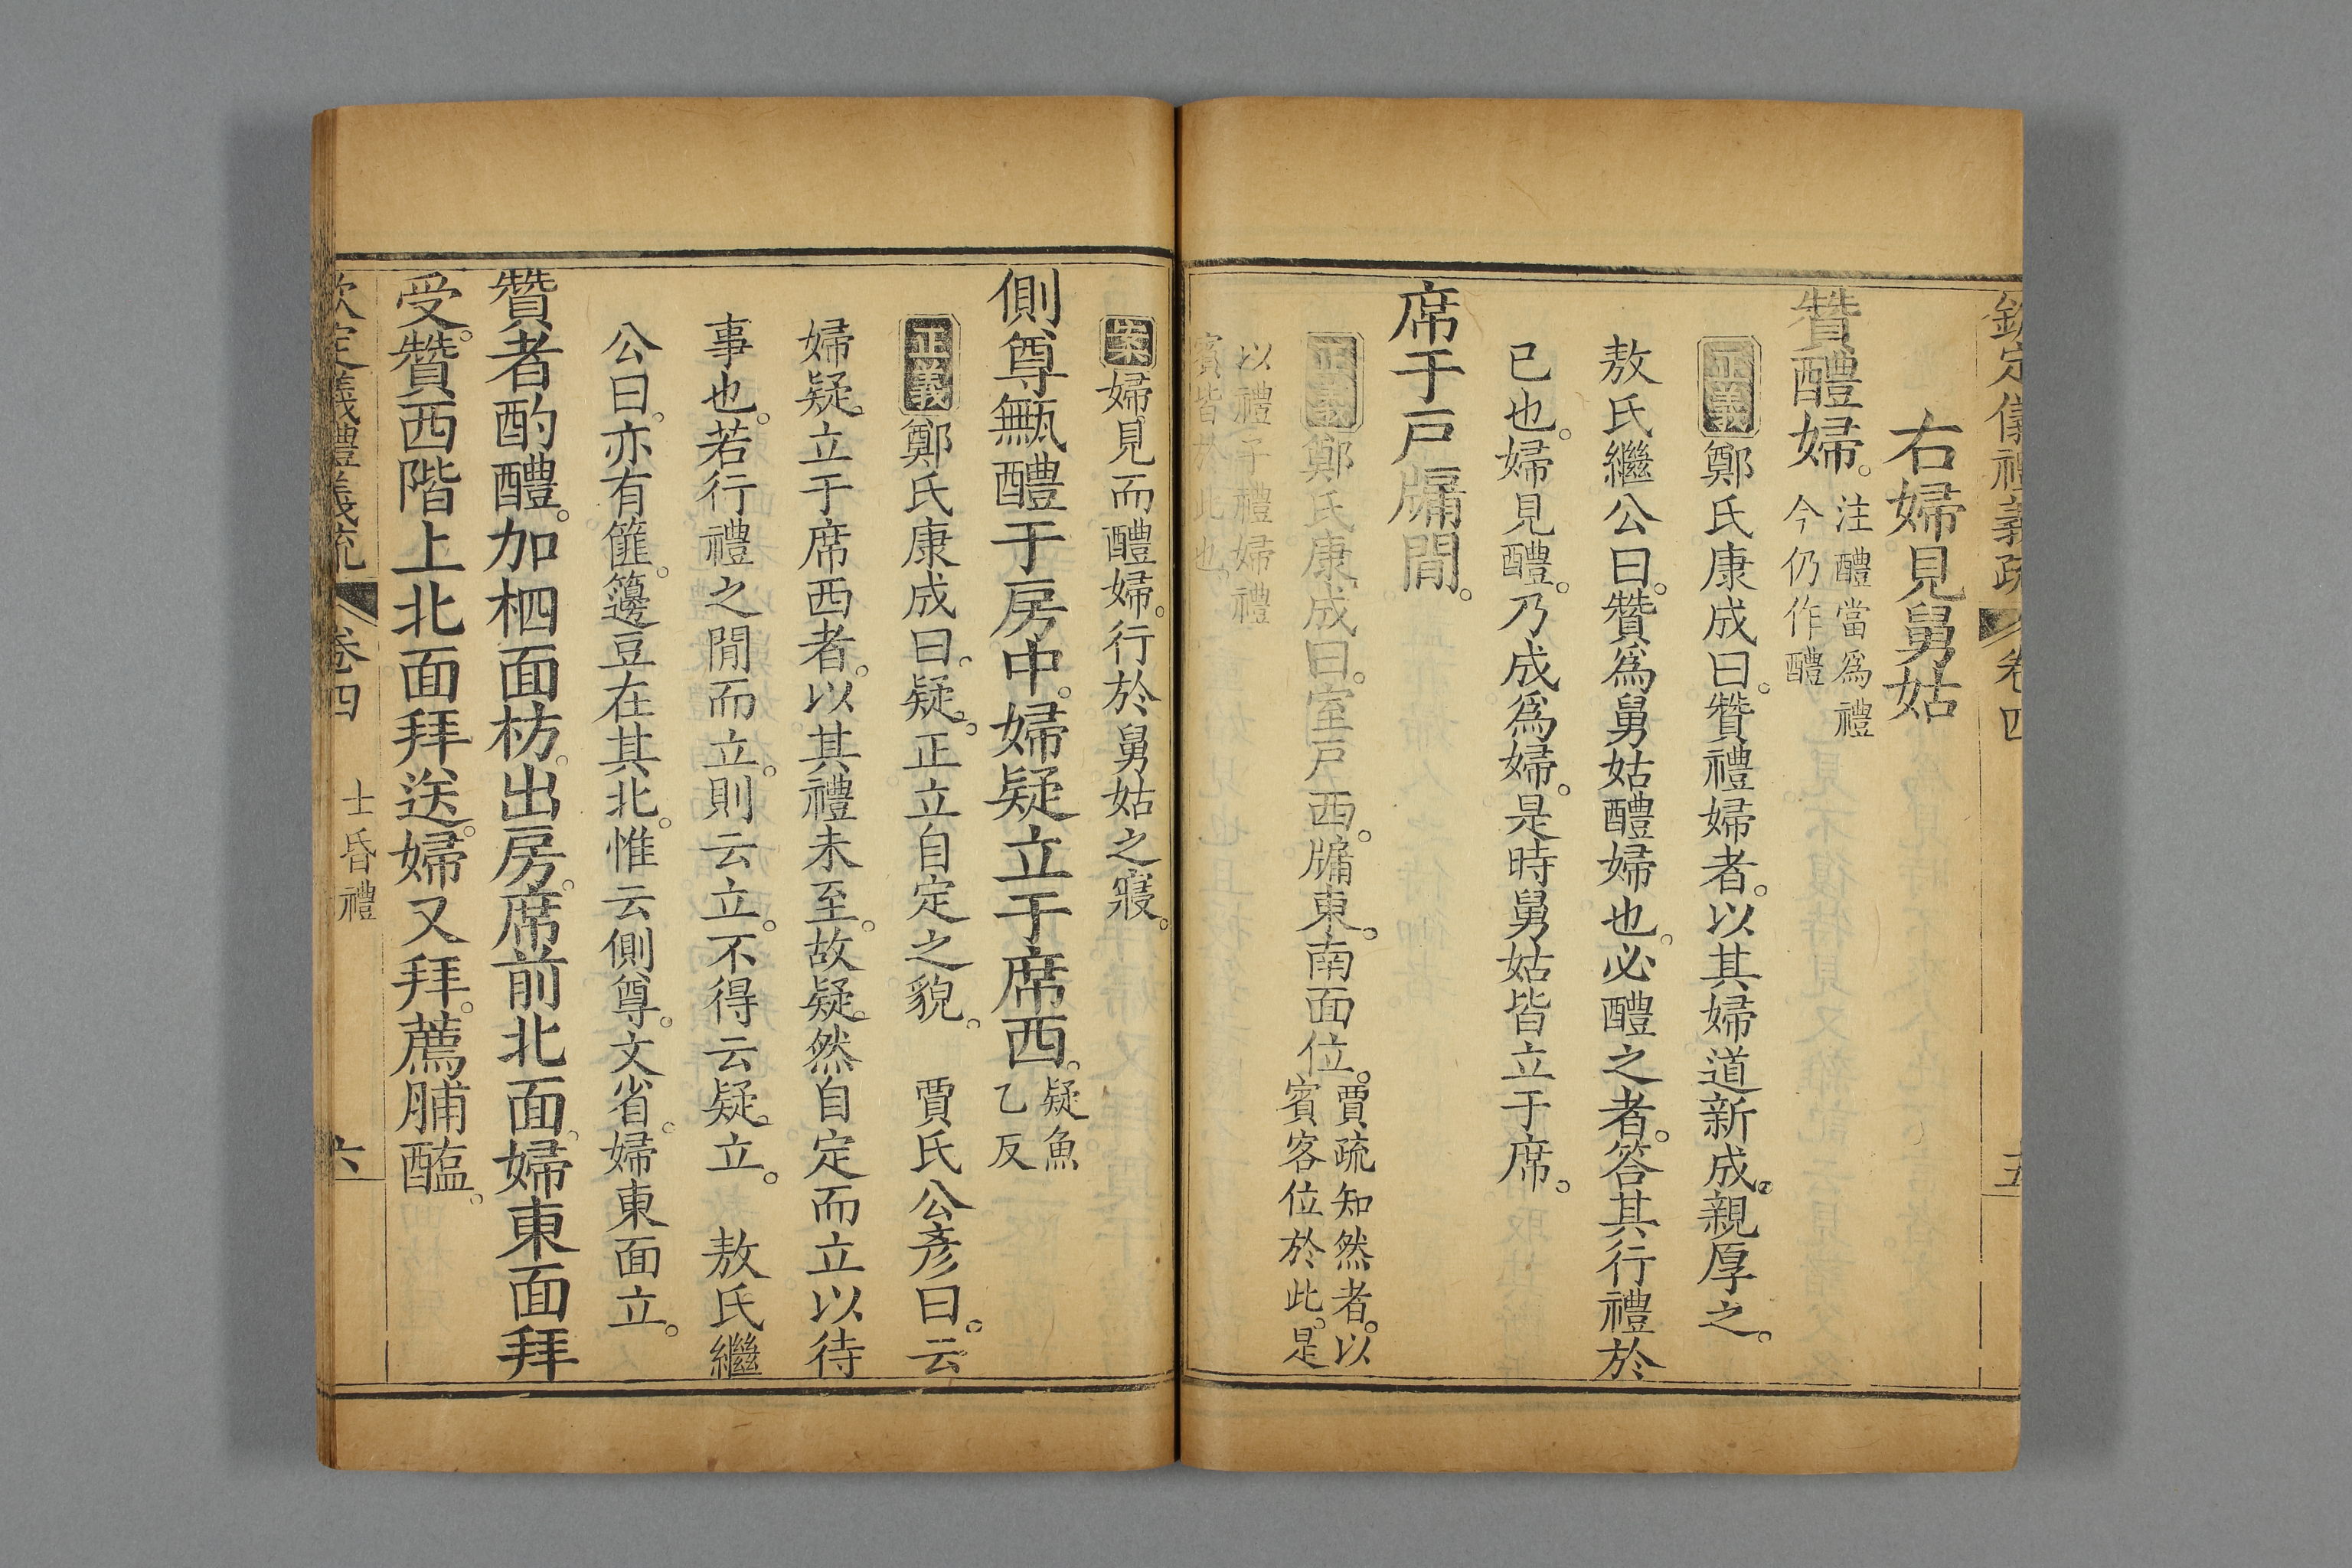 欽定儀禮義疏 卷四 五
右婦見舅姑
贊醴婦。注醴當爲禮
今仍作醴
正義鄭氏康成曰。贊禮婦者。以其婦道新成。親厚之。
敖氏繼公曰。贊爲舅姑醴婦也。必醴之者。答其行禮於
已也。婦見醴。乃成爲婦。是時舅姑皆立于席。
席于戶牖閒。
正義鄭氏康成曰。室戶西。牖東。南面位。賈疏知然者。以
賓客位於此。是
以禮子禮婦禮
賓皆於此也。
案婦見而醴婦。行於舅姑之寢。
側尊甒醴于房中。婦疑立于席西。疑魚
乙反
正義鄭氏康成曰。疑。正立自定之貌。 賈氏公彥曰。云
婦疑。立于席西者。以其禮未至。故疑。然自定而立以待
事也。若行禮之閒而立。則云立。不得云疑。立。 敖氏繼
公曰。亦有篚。籩豆在其北。惟云側尊。文省。婦東面立。
贊者酌醴。加柶面枋。出房。席前北面。婦東面拜
受。贊西階上北面拜送。婦又拜。薦脯醢。
欽定儀禮義疏 卷四 士昏禮 六